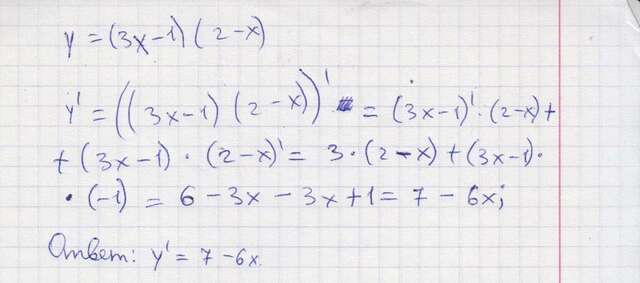 y = (3x-1)(2-x)
y' = ((3x-1)(2-x))' = (3x-1)'·(2-x)+
+(3x-1)·(2-x)' = 3·(2-x)+(3x-1)·
·(-1) = 6-3x-3x+1 = 7-6x;
Ответ: y' = 7-6x.